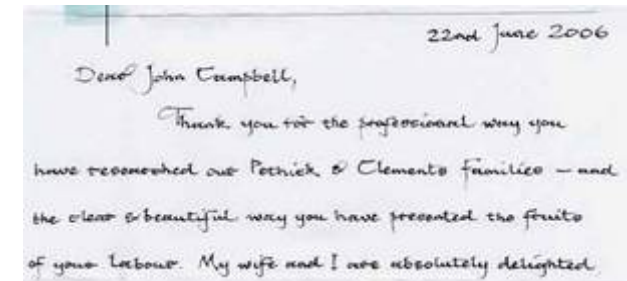 22nd June 2006
Dear John Campbell,
Thank you for the professional way you
have researched our Pethick & Clements families – and
the clear & beautiful way you have presented the fruits
of your labour. My wife and I are absolutely delighted